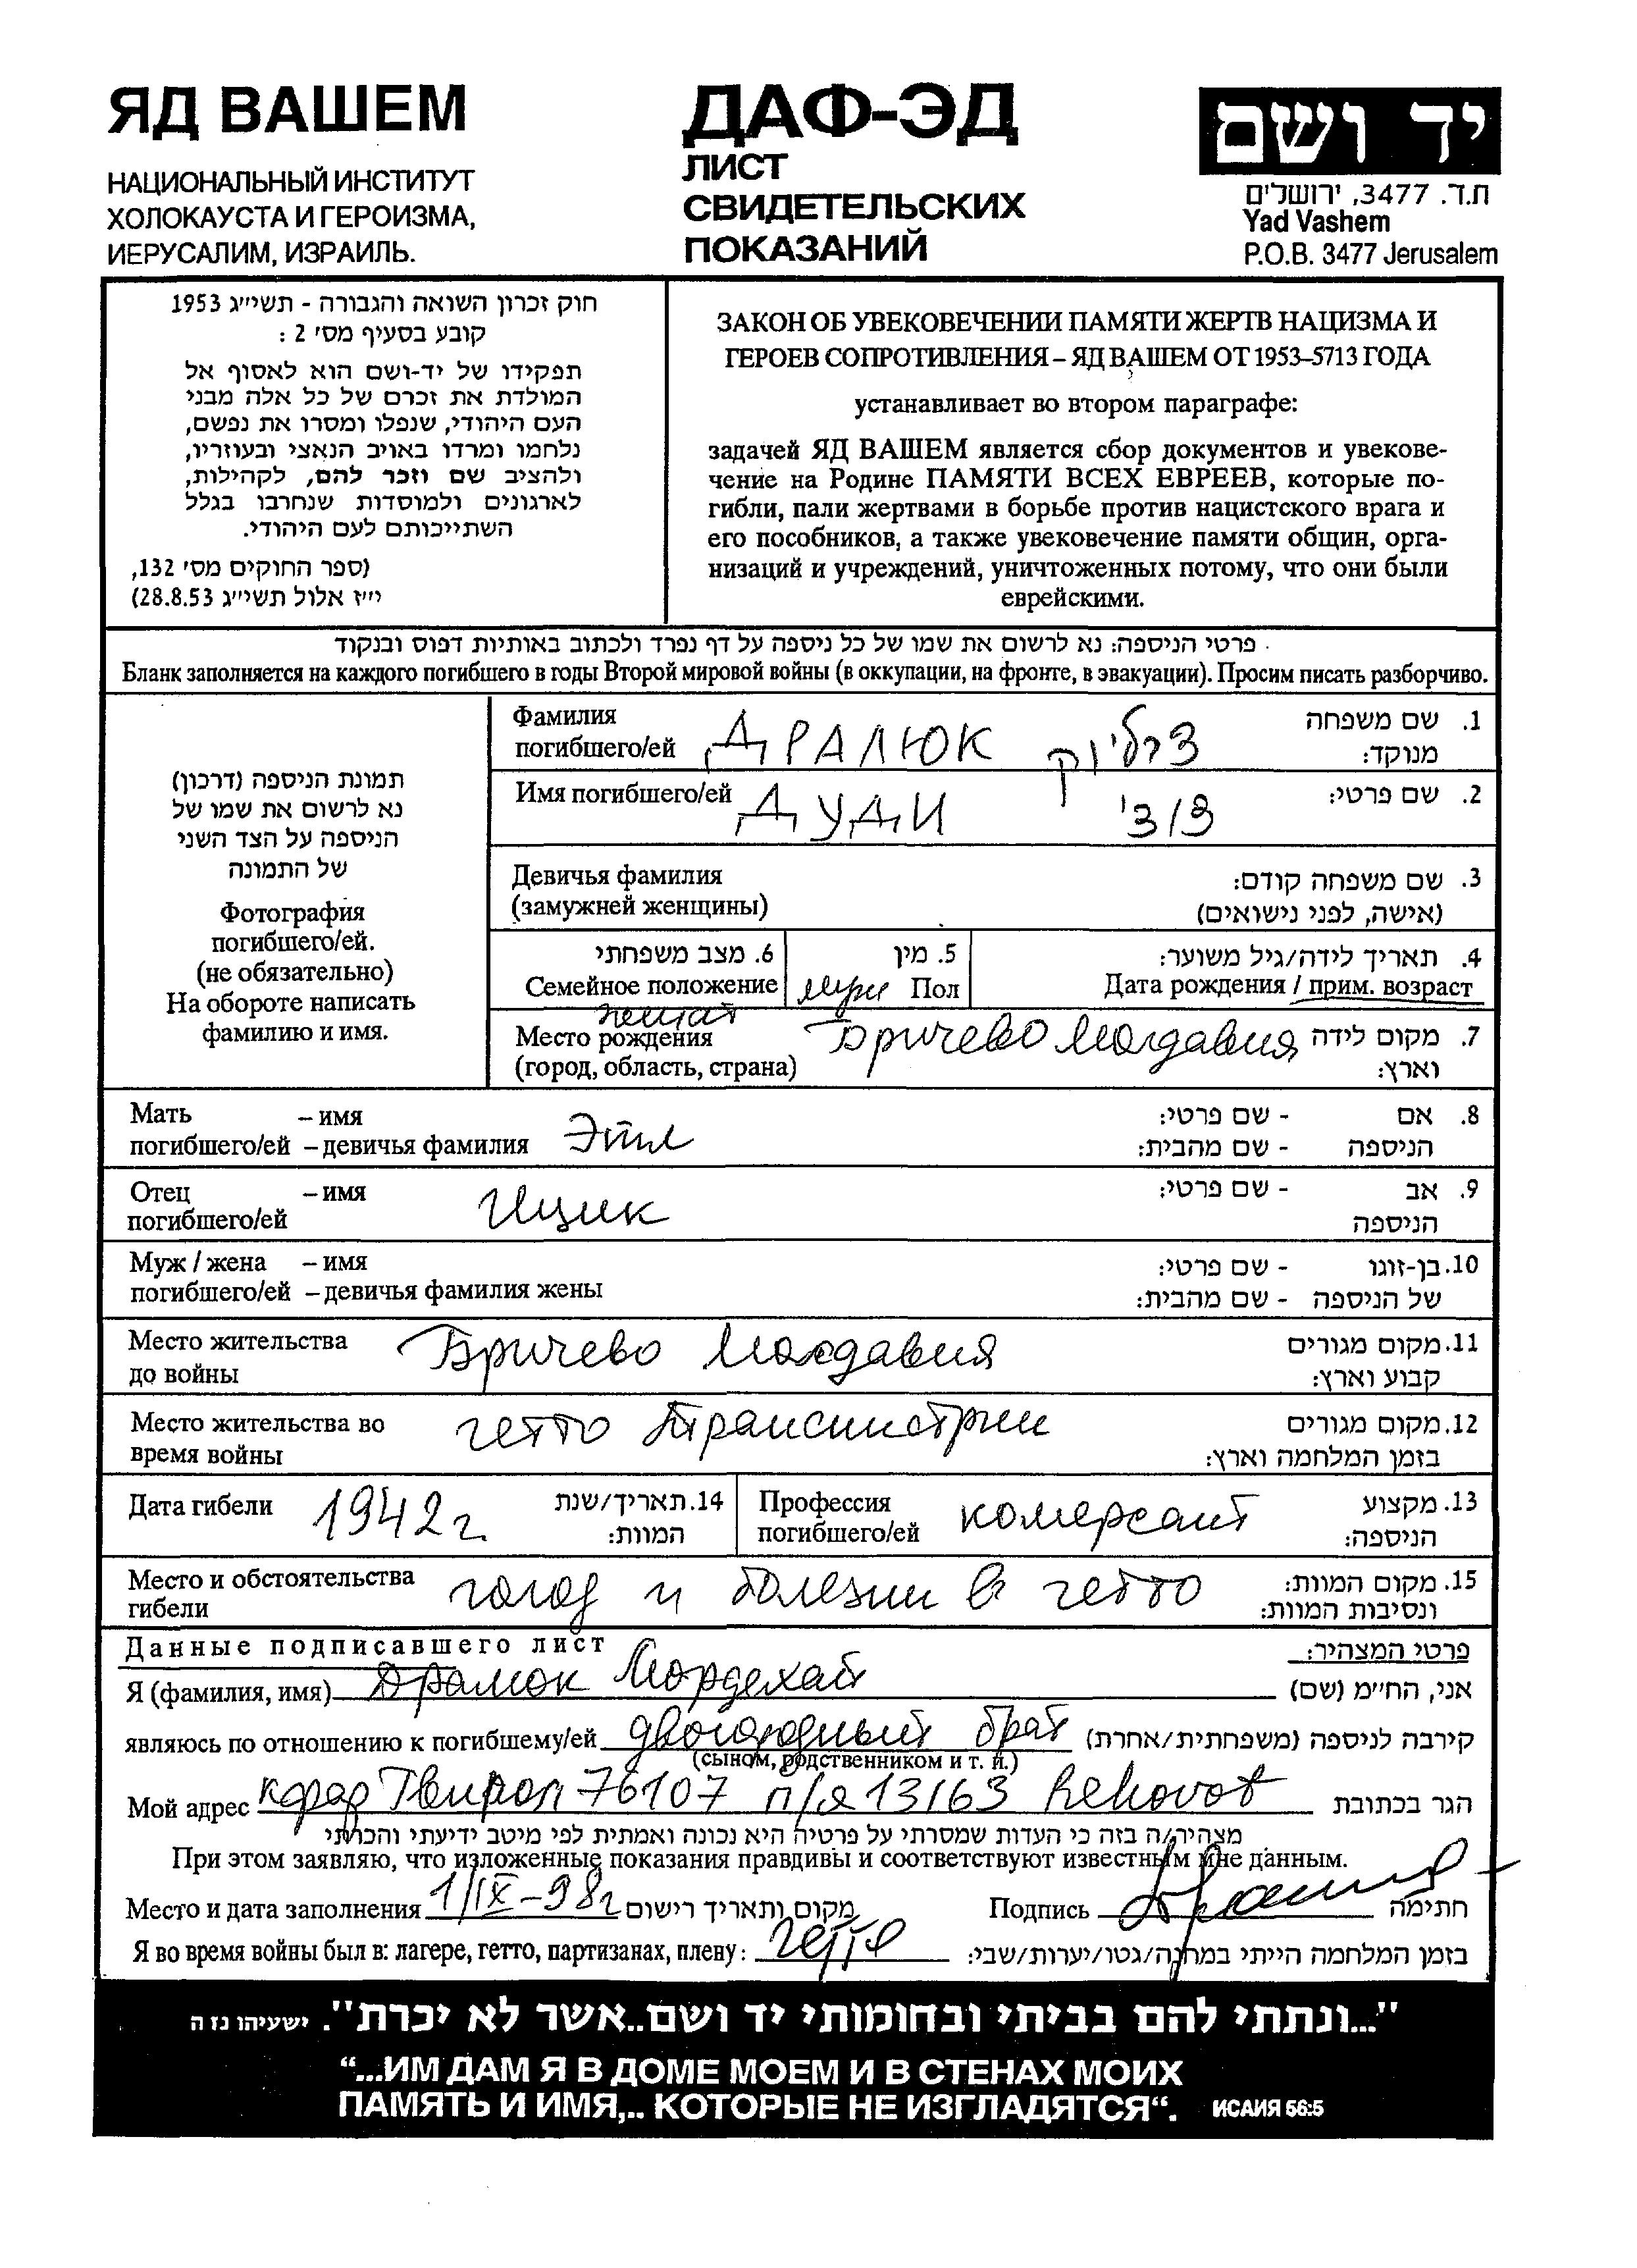 ЯД ВАШЕМ
НАЦИОНАЛЬНЫЙ ИНСТИТУТ
ХОЛОКАУСТА И ГЕРОИЗМА,
ИЕРУСАЛИМ, ИЗРАИЛЬ.
ДАФ-ЭД
ЛИСТ
СВИДЕТЕЛЬСКИХ
ПОКАЗАНИЙ
יד ושם
ת.ד. 3477, ירושלים
Yad Vashem
P.O.B. 3477 Jerusalem
חוק זכרון השואה והגבורה - תשי״ג 1953
קובע בסעיף מס׳ 2 :
תפקידו של יד-ושם הוא לאסוף אל
המולדת את זכרם של כל אלה מבני
העם היהודי, שנפלו ומסרו את נפשם,
נלחמו ומרדו באויב הנאצי ובעוזריו,
ולהציב שם וזכר להם, לקהילות,
לארגונים ולמוסדות שנחרבו בגלל
השתייכותם לעם היהודי.
(ספר החוקים מס׳ 132,
י״ז אלול תשי״ג 28.8.53)
ЗАКОН ОБ УВЕКОВЕЧЕНИИ ПАМЯТИ ЖЕРТВ НАЦИЗМА И
ГЕРОЕВ СОПРОТИВЛЕНИЯ – ЯД ВАШЕМ ОТ 1953–5713 ГОДА
устанавливает во втором параграфе:
задачей ЯД ВАШЕМ является сбор документов и увекове-
чение на Родине ПАМЯТИ ВСЕХ ЕВРЕЕВ, которые по-
гибли, пали жертвами в борьбе против нацистского врага и
его пособников, а также увековечение памяти общин, орга-
низаций и учреждений, уничтоженных потому, что они были
еврейскими.
פרטי הניספה: נא לרשום את שמו של כל ניספה על דף נפרד ולכתוב באותיות דפוס ובנקוד
Бланк заполняется на каждого погибшего в годы Второй мировой войны (в оккупации, на фронте, в эвакуации). Просим писать разборчиво.
תמונת הניספה (דרכון)
נא לרשום את שמו של
הניספה על הצד השני
של התמונה
Фотография
погибшего/ей.
(не обязательно)
На обороте написать
фамилию и имя.
Фамилия ДРАЛЮК דרליוק 1. שם משפחה
погибшего/ей מנוקד:
Имя погибшего/ей ДУДИ דודי 2. שם פרטי:
Девичья фамилия 3. שם משפחה קודם:
(замужней женщины) (אישה, לפני נישואים)
6. מצב משפחתי 5. מין 4. תאריך לידה/גיל משוער:
Семейное положение муж Пол Дата рождения / прим. возраст
женат
Место рождения Бричево Молдавия 7. מקום לידה
(город, область, страна) וארץ:
Мать – имя Этл 8. אם - שם פרטי:
погибшего/ей – девичья фамилия הניספה - שם מהבית:
Отец – имя Ицик 9. אב - שם פרטי:
погибшего/ей הניספה
Муж / жена – имя 10. בן-זוגו - שם פרטי:
погибшего/ей – девичья фамилия жены של הניספה - שם מהבית:
Место жительства Бричево Молдавия 11. מקום מגורים
до войны קבוע וארץ:
Место жительства во гетто Транснистрии 12. מקום מגורים
время войны בזמן המלחמה וארץ:
Дата гибели 1942 г. 14. תאריך/שנת
המוות:
Профессия комерсант 13. מקצוע
погибшего/ей הניספה:
Место и обстоятельства голод и болезни в гетто 15. מקום המוות:
гибели ונסיבות המוות:
Данные подписавшего лист פרטי המצהיר:
Я (фамилия, имя) Дралюк Мордехай אני, החי״מ (שם)
являюсь по отношению к погибшему/ей двоюродный брат קירבה לניספה (משפחתית/אחרת)
(сыном, родственником и т. п.)
Мой адрес кфар Гвирол 76107 п/я 13163 Rehovot הגר בכתובת
מצהיר/ה בזה כי העדות שמסרתי על פרטיה היא נכונה ואמתית לפי מיטב ידיעתי והכרתי
При этом заявляю, что изложенные показания правдивы и соответствуют известным мне данным.
Место и дата заполнения 1/IX-98г מקום ותאריך רישום Подпись חתימה
Я во время войны был в: лагере, гетто, партизанах, плену: гетто בזמן המלחמה הייתי במחנה/גטו/יערות/שבי:
"...ונתתי להם בביתי ובחומותי יד ושם..אשר לא יכרת". ישעיהו נז ה
“...ИМ ДАМ Я В ДОМЕ МОЕМ И В СТЕНАХ МОИХ
ПАМЯТЬ И ИМЯ,.. КОТОРЫЕ НЕ ИЗГЛАДЯТСЯ“. ИСАИЯ 56:5